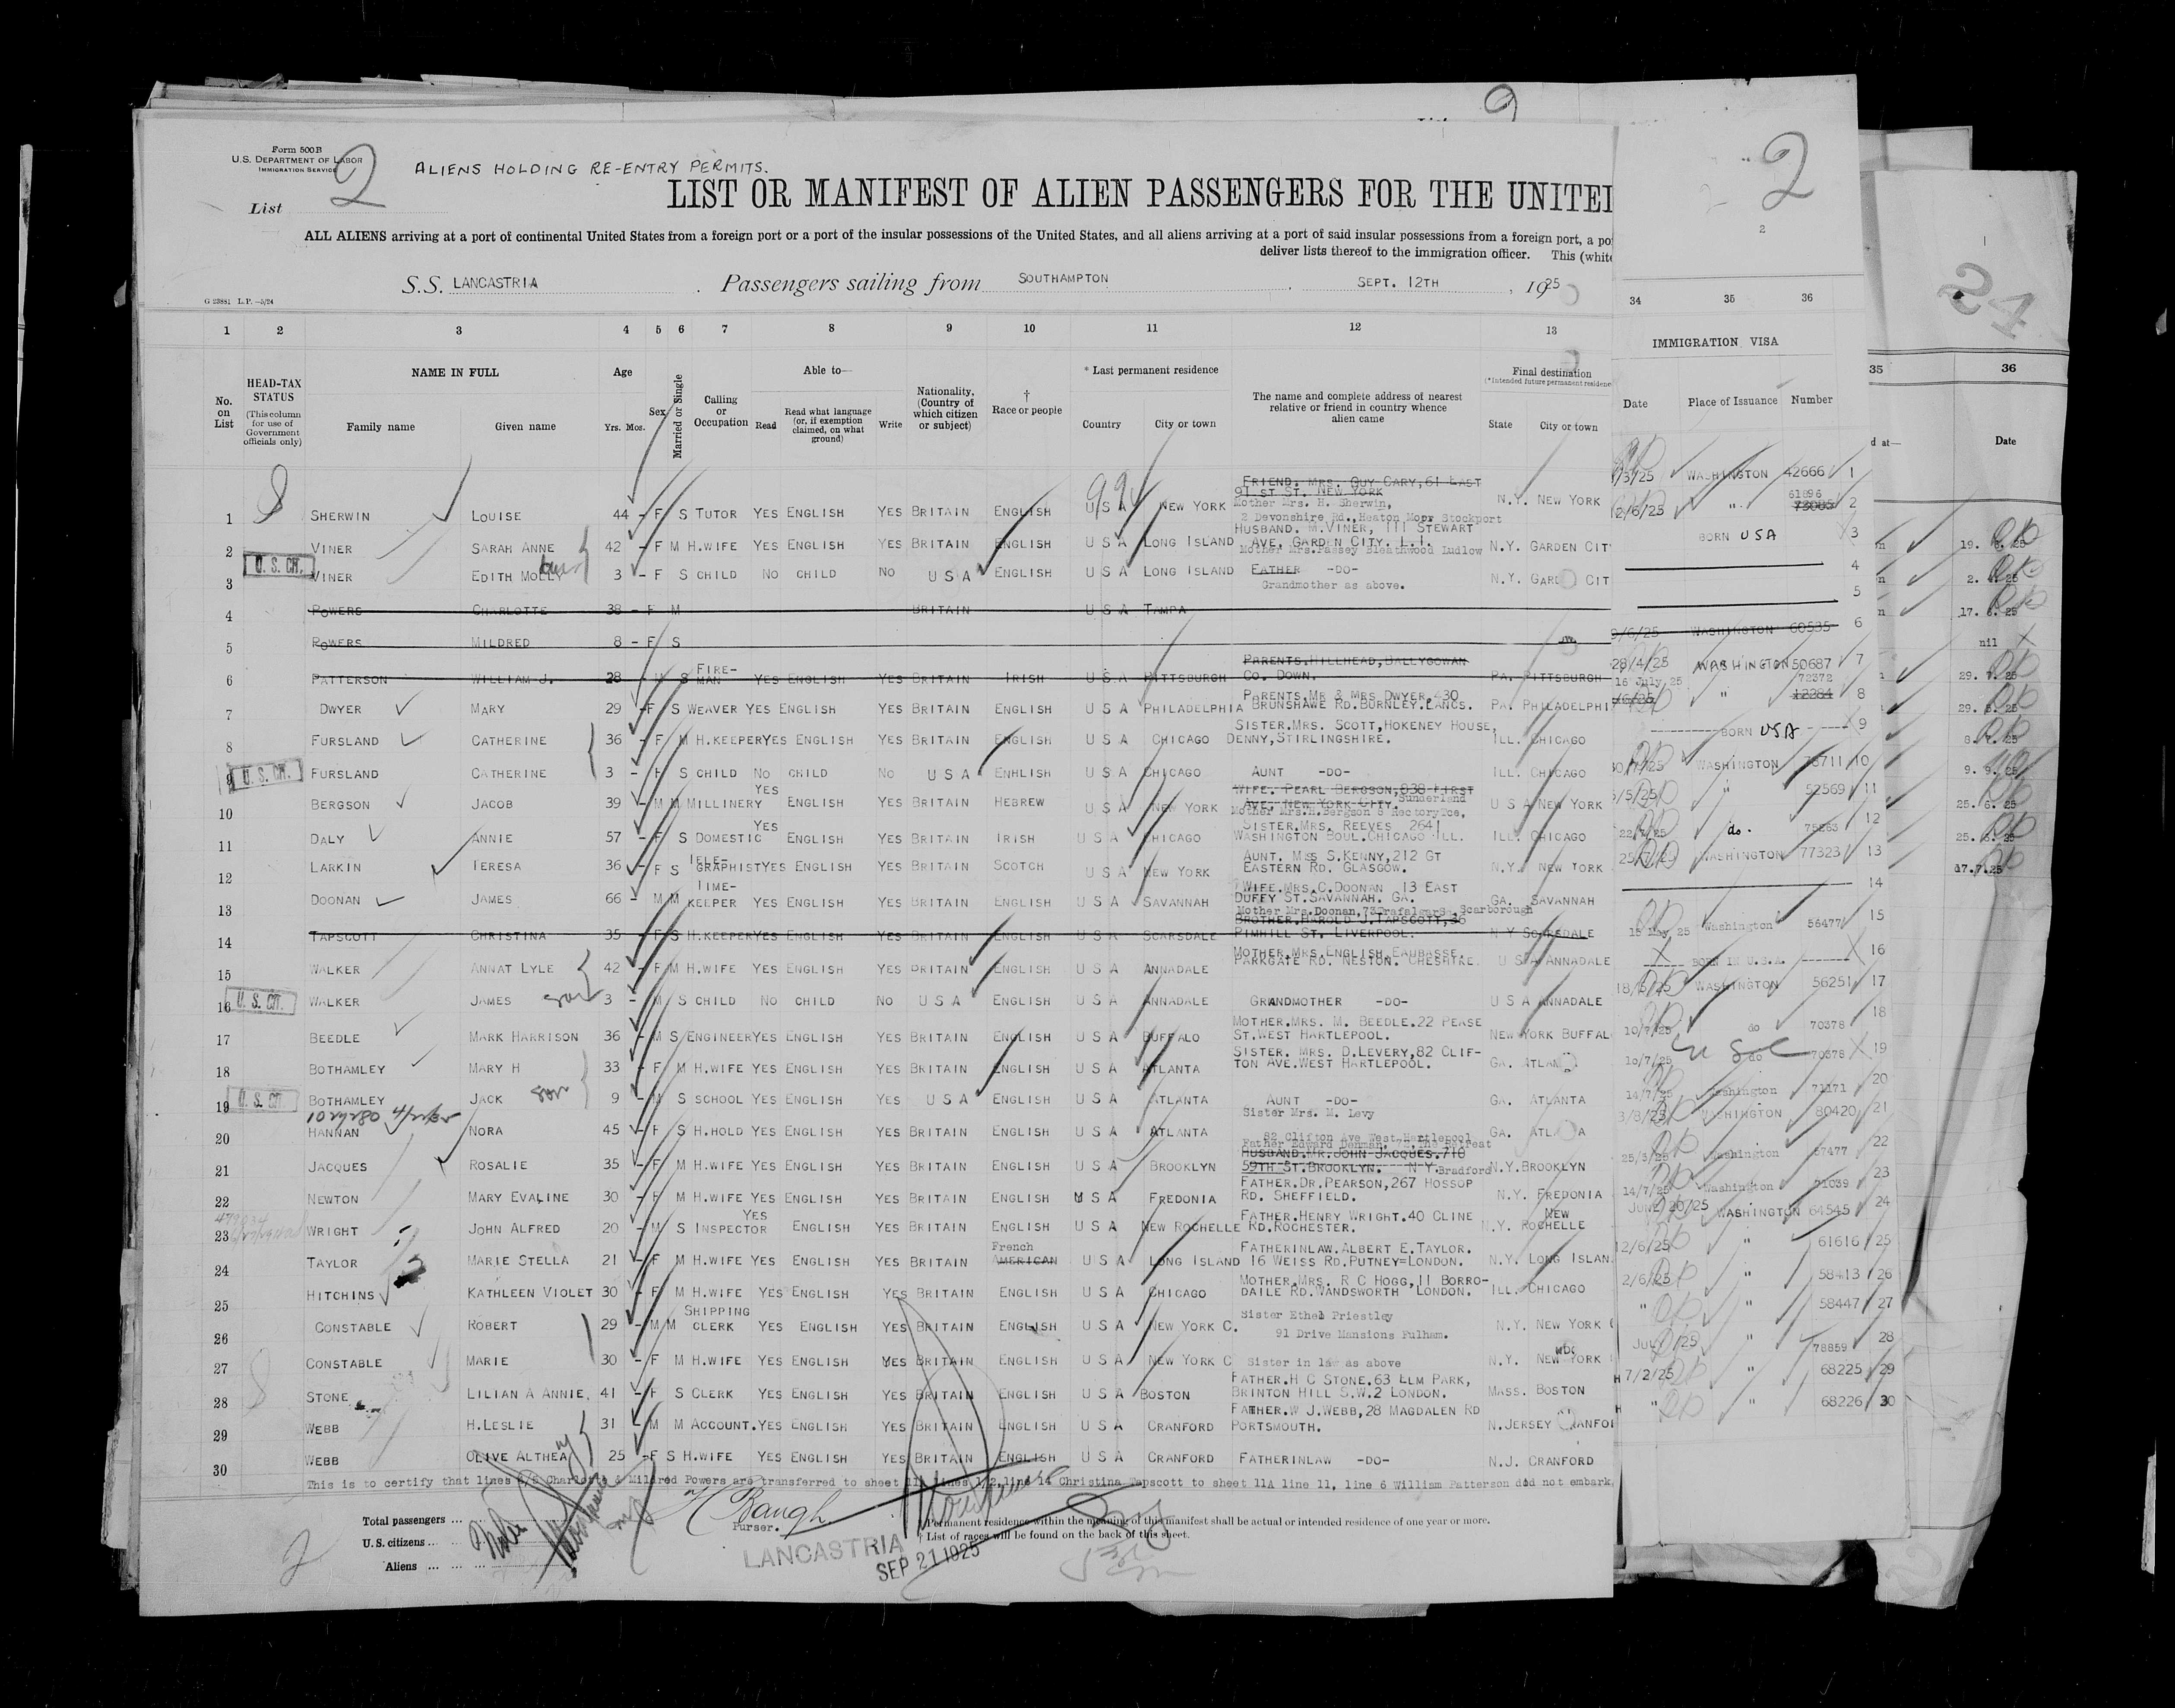 Form 500 B
U.S. DEPARTMENT OF LABOR
IMMIGRATION SERVICE
2
ALIENS HOLDING RE-ENTRY PERMITS.
List
LIST OR MANIFEST OF ALIEN PASSENGERS FOR THE UNITE
ALL ALIENS arriving at a port of continental United States from a foreign port or a port of the insular possessions of the United States, and all aliens arriving at a port of said insular possessions from a foreign port, a po
deliver lists thereof to the immigration officer. This (white
S.S. LANCASTRIA. Passengers sailing from SOUTHAMPTON, SEPT. 12TH, 1925
G 23881 L.P.—5/24
1 2 3 4 5 6 7 8 9 10 11 12 13
No. on List
HEAD-TAX STATUS (This column for use of Government officials only)
NAME IN FULL
Family name Given name
Age
Yrs. Mos.
Sex
Married or Single
Calling or Occupation
Able to—
Read Read what language (or, if exemption claimed, on what ground) Write
Nationality, (Country of which citizen or subject)
† Race or people
* Last permanent residence
Country City or town
The name and complete address of nearest relative or friend in country whence alien came
Final destination
(*Intended future permanent residence
State City or town
1 SHERWIN LOUISE 44 - F S TUTOR YES ENGLISH YES BRITAIN ENGLISH U S A NEW YORK FRIEND. MRS. GUY CARY, 61 EAST 91 ST ST. NEW YORK Mother Mrs. H. Sherwin, 2 Devonshire Rd., Heaton Moor Stockport N.Y. NEW YORK
2 VINER SARAH ANNE 42 - F M H.WIFE YES ENGLISH YES BRITAIN ENGLISH U S A LONG ISLAND HUSBAND. M.VINER, 111 STEWART AVE, GARDEN CITY. L.I. Mother Mrs.Passey Bleathwood Ludlow N.Y. GARDEN CIT
3 U.S. CIT. VINER EDITH MOLLY 3 - F S CHILD NO CHILD NO U S A ENGLISH U S A LONG ISLAND FATHER -DO- Grandmother as above. N.Y. GARD CIT
4 POWERS CHARLOTTE 38 - F M BRITAIN U S A TAMPA
5 POWERS MILDRED 8 - F S
6 PATTERSON WILLIAM J. 28 - M S FIRE-MAN YES ENGLISH YES BRITAIN IRISH U S A PITTSBURGH PARENTS.HILLHEAD, BALLYGOWAN CO. DOWN. PA. PITTSBURGH
7 DWYER MARY 29 - F S WEAVER YES ENGLISH YES BRITAIN ENGLISH U S A PHILADELPHIA PARENTS.MR & MRS DWYER,430 BRUNSHAWE RD.BURNLEY.LANCS. PA. PHILADELPHI
8 FURSLAND CATHERINE 36 - F M H.KEEPER YES ENGLISH YES BRITAIN ENGLISH U S A CHICAGO SISTER.MRS. SCOTT, HOKENEY HOUSE, DENNY, STIRLINGSHIRE. ILL. CHICAGO
9 U.S. CIT. FURSLAND CATHERINE 3 - F S CHILD NO CHILD NO U S A ENHLISH U S A CHICAGO AUNT -DO- ILL. CHICAGO
10 BERGSON JACOB 39 - M M MILLINERY YES ENGLISH YES BRITAIN HEBREW U S A NEW YORK WIFE. PEARL BERGSON, 838 FIRST AVE. NEW YORK CITY. Sunderland Mother Mrs.H.Bergson 6 Rectory Tce, U S A NEW YORK
11 DALY ANNIE 57 - F S DOMESTIC YES ENGLISH YES BRITAIN IRISH U S A CHICAGO SISTER.MRS. REEVES 2641 WASHINGTON BOUL.CHICAGO ILL. ILL. CHICAGO
12 LARKIN TERESA 36 - F S TELE-GRAPHIST YES ENGLISH YES BRITAIN SCOTCH U S A NEW YORK AUNT. MRS S.KENNY, 212 GT EASTERN RD. GLASGOW. N.Y. NEW YORK
13 DOONAN JAMES 66 - M M TIME-KEEPER YES ENGLISH YES BRITAIN ENGLISH U S A SAVANNAH WIFE.MRS.C.DOONAN 13 EAST DUFFY ST.SAVANNAH. GA. Mother Mrs.Doonan,73Trafalgar Sq Scarborough GA. SAVANNAH
14 TAPSCOTT CHRISTINA 35 - F S H.KEEPER YES ENGLISH YES BRITAIN ENGLISH U S A SCARSDALE BROTHER.HAROLD J.TAPSCOTT,36 PIMHILL ST. LIVERPOOL. N Y SCARSDALE
15 WALKER ANNAT LYLE 42 - F M H.WIFE YES ENGLISH YES BRITAIN ENGLISH U S A ANNADALE MOTHER.MRS.ENGLISH.EAUBASSE. PARKGATE RD. NESTON. CHESHIRE. U S A ANNADALE
16 U.S. CIT. WALKER JAMES son 3 - M S CHILD NO CHILD NO U S A ENGLISH U S A ANNADALE GRANDMOTHER -DO- U S A ANNADALE
17 BEEDLE MARK HARRISON 36 - M S ENGINEER YES ENGLISH YES BRITAIN ENGLISH U S A BUFFALO MOTHER.MRS. M. BEEDLE.22 PEASE ST.WEST HARTLEPOOL. NEW YORK BUFFAL
18 BOTHAMLEY MARY H 33 - F M H.WIFE YES ENGLISH YES BRITAIN ENGLISH U S A ATLANTA SISTER. MRS. D.LEVERY, 82 CLIF-TON AVE.WEST HARTLEPOOL. GA. ATLAN
19 U.S. CIT. BOTHAMLEY JACK son 9 - M S SCHOOL YES ENGLISH YES U S A ENGLISH U S A ATLANTA AUNT -DO- GA. ATLANTA
20 HANNAN NORA 45 - F S H.HOLD YES ENGLISH YES BRITAIN ENGLISH U S A ATLANTA Sister Mrs. M. Levy 82 Clifton Ave West Hartlepool GA. ATLA A
21 JACQUES ROSALIE 35 - F M H.WIFE YES ENGLISH YES BRITAIN ENGLISH U S A BROOKLYN Father Edward Denman, The Retreat HUSBAND.MR.JOHN JACQUES.710 59TH ST.BROOKLYN. N Y. Bradford N.Y.BROOKLYN
22 NEWTON MARY EVALINE 30 - F M H.WIFE YES ENGLISH YES BRITAIN ENGLISH U S A FREDONIA FATHER.DR.PEARSON, 267 HOSSOP RD. SHEFFIELD. N.Y. FREDONIA
23 WRIGHT JOHN ALFRED 20 - M S INSPECTOR YES ENGLISH YES BRITAIN ENGLISH U S A NEW ROCHELLE FATHER.HENRY WRIGHT.40 CLINE RD.ROCHESTER. N.Y. NEW ROCHELLE
24 TAYLOR MARIE STELLA 21 - F M H.WIFE YES ENGLISH YES BRITAIN French AMERICAN U S A LONG ISLAND FATHERINLAW.ALBERT E.TAYLOR. 16 WEISS RD.PUTNEY=LONDON. N.Y. LONG ISLAN
25 HITCHINS KATHLEEN VIOLET 30 - F M H.WIFE YES ENGLISH YES BRITAIN ENGLISH U S A CHICAGO MOTHER.MRS. R C HOGG, 11 BORRO-DAILE RD.WANDSWORTH LONDON. ILL. CHICAGO
26 CONSTABLE ROBERT 29 - M M SHIPPING CLERK YES ENGLISH YES BRITAIN ENGLISH U S A NEW YORK C. Sister Ethel Priestley 91 Drive Mansions Fulham. N.Y. NEW YORK
27 CONSTABLE MARIE 30 - F M H.WIFE YES ENGLISH YES BRITAIN ENGLISH U S A NEW YORK C Sister in law as above N.Y. NEW YORK
28 STONE LILIAN A ANNIE. 41 - F S CLERK YES ENGLISH YES BRITAIN ENGLISH U S A BOSTON FATHER.H C STONE.63 ELM PARK, BRINTON HILL S.W.2 LONDON. MASS. BOSTON
29 WEBB H.LESLIE 31 - M M ACCOUNT. YES ENGLISH YES BRITAIN ENGLISH U S A CRANFORD FATHER.W J.WEBB, 28 MAGDALEN RD PORTSMOUTH. N.JERSEY RANFO
30 WEBB OLIVE ALTHEA 25 - F S H.WIFE YES ENGLISH YES BRITAIN ENGLISH U S A CRANFORD FATHERINLAW -DO- N.J. CRANFORD
This is to certify that lines 4/5 Charlotte & Mildred Powers are transferred to sheet 11A lines 1/2, line 14 Christina Tapscott to sheet 11A line 11, line 6 William Patterson did not embark.
Purser.
Total passengers
U.S. citizens
Aliens
LANCASTRIA
SEP 21 1925
* Permanent residence within the meaning of this manifest shall be actual or intended residence of one year or more.
† List of races will be found on the back of this sheet.
2
2
2
34 35 36
IMMIGRATION VISA
Date Place of Issuance Number
/3/25 WASHINGTON 42666 1
2/6/25 " 61896 73005 2
BORN USA 3
4
5
9/6/25 WASHINGTON 60535 6
28/4/25 WASHINGTON 50687 7
16 July 25 /6/25 " 72372 12284 8
BORN USA 9
30/7/25 WASHINGTON 78711 10
5/5/25 " 52569 11
22/7/25 do. 75263 12
25/7/25 WASHINGTON 77323 13
14
15 May 25 Washington 56477 15
BORN IN U.S.A. 16
18/5/25 WASHINGTON 56251 17
10/7/25 do 70378 18
10/7/25 do 70378 19
14/7/25 Washington 71171 20
3/8/25 WASHINGTON 80420 21
25/3/25 Washington 67477 22
14/7/25 Washington 71039 23
JUNE 20/25 WASHINGTON 64545 24
12/6/25 " 61616 25
2/6/25 " 58413 26
" " 58447 27
JULY /25 " 78859 28
7/2/25 " 68225 29
" " 68226 30
24
35 36
d at— Date
19. 6. 25
2. 4. 25
17. 6. 25
nil
29. 7. 25
29. 5. 25
8. 7. 25
9. 9. 25
25. 6. 25
25. 6. 25
17.7.25